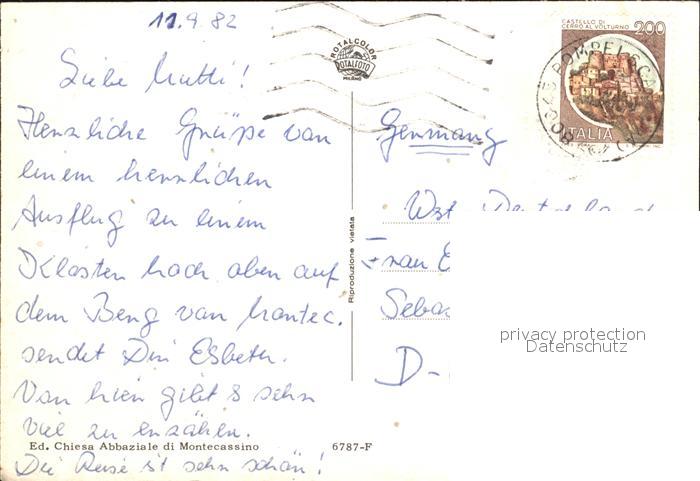 11.9.82
Liebe Mutti!
Herzliche Grüße von
einem herrlichen
Ausflug zu einem
Kloster hoch oben auf
dem Berg von Montec.
sendet Dir Elsbeth.
Von hier gibt's sehr
viel zu erzählen.
Ed. Chiesa Abbaziale di Montecassino 6787-F
Die Reise ist sehr schön!
ROTALCOLOR
ROTALFOTO
MILANO
Riproduzione vietata
CASTELLO DI
CERRO AL VOLTURNO 200
ITALIA
POMPEI
Germany
West Deutschland
Frau E
Sebas
D-
privacy protection
Datenschutz